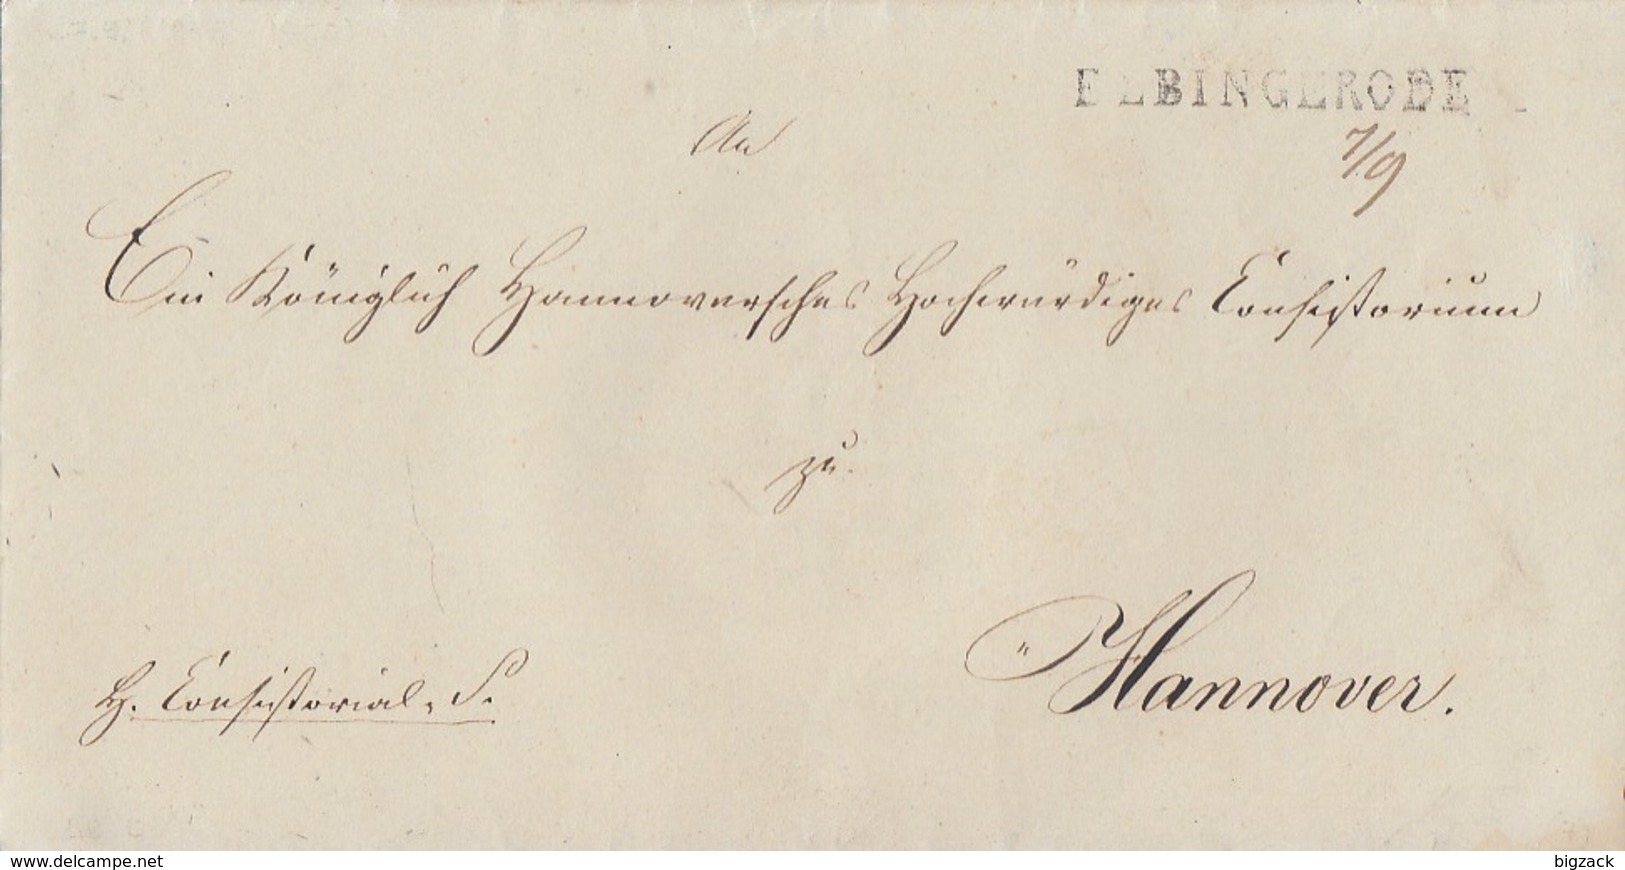 ELBINGERODE
7/9
An
Ein Königlich Hannoversches Hochwürdiges Consistorium
zu
Hannover.
H. Consistorial. S.
www.delcampe.net
bigzack